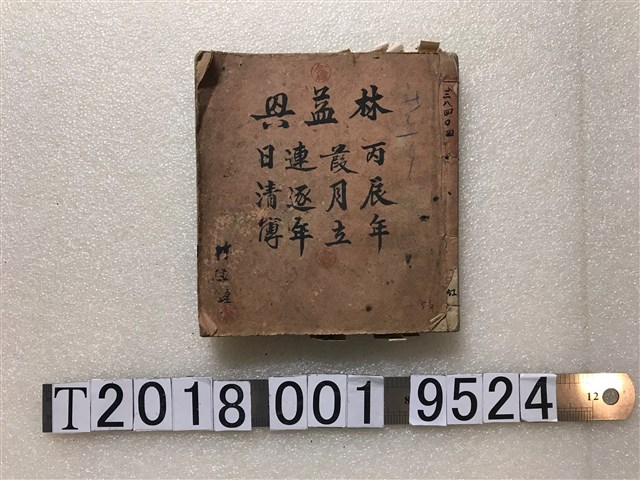 林益興
丙辰年
葭月立
連逐年
日清簿
T2018 001 9524
12